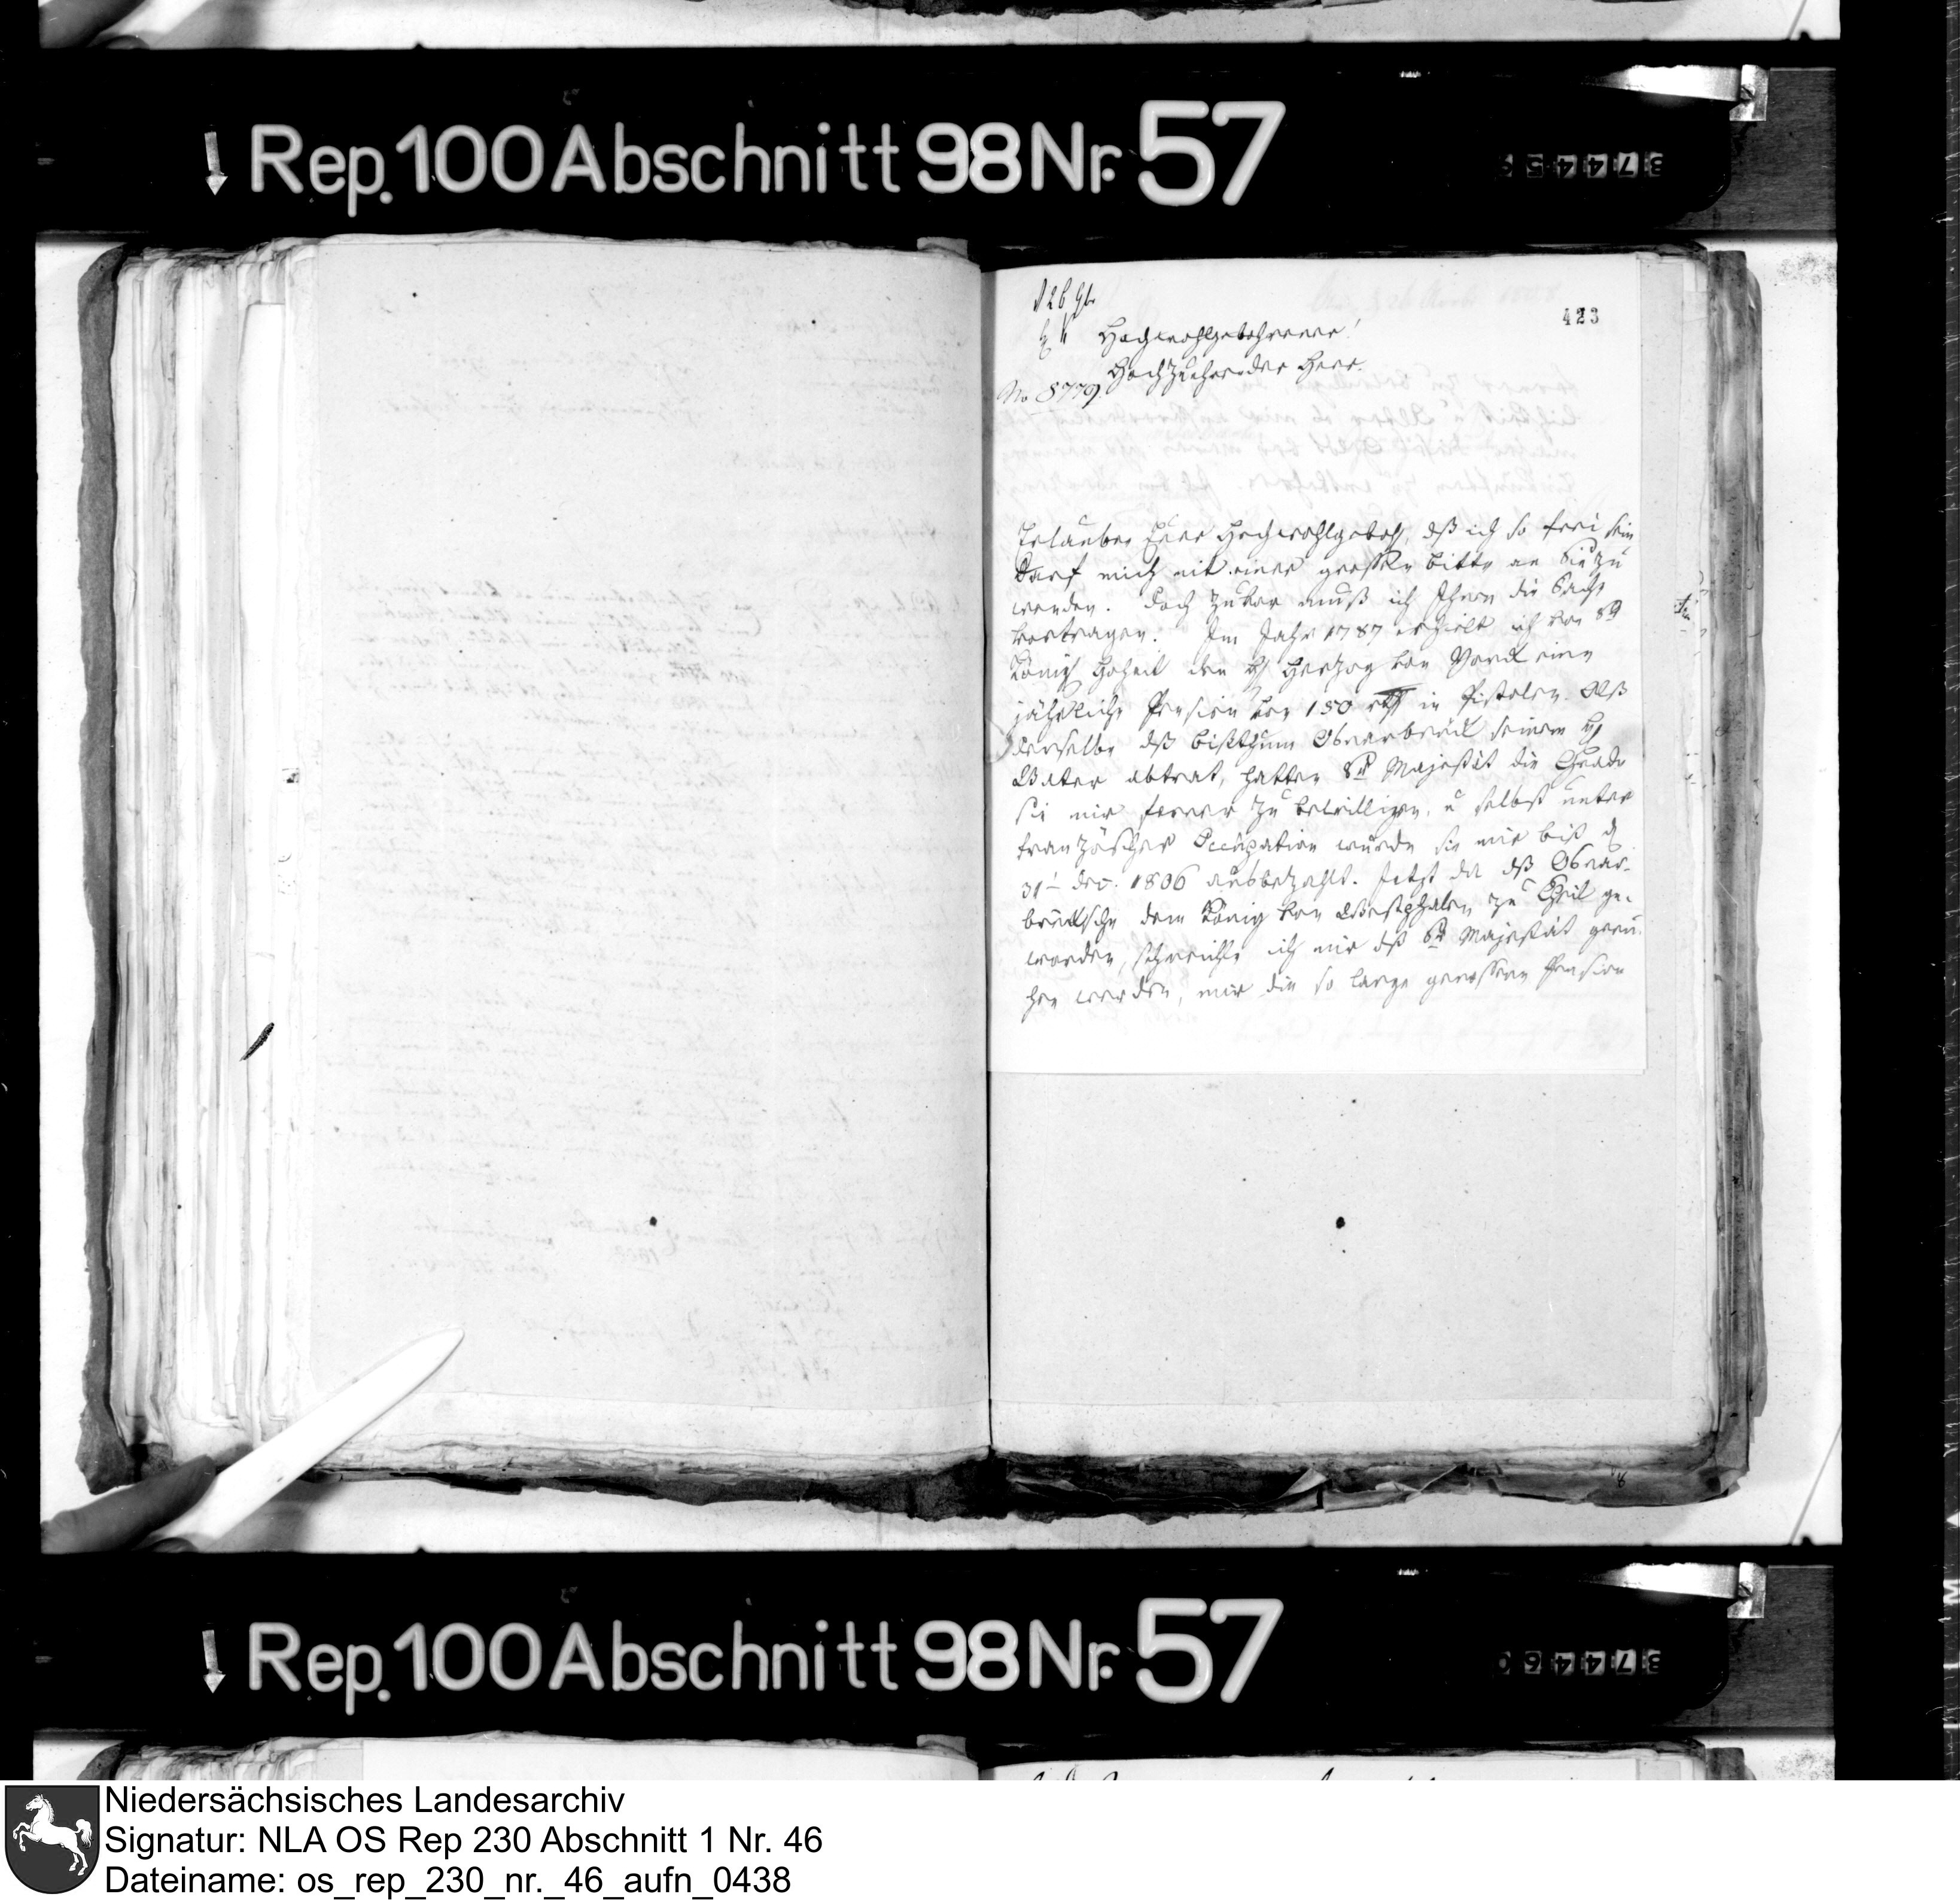 Rep. 100 Abschnitt 98 Nr. 57
423
Hochwohlgebohrener!
Hochzuehrender Herr.
No 8779.
Erlauben Euer Hochwohlgeboh, dß ich so frei sein
Darf mich mit einer großen bitte an Sie zu
wenden. Doch zuvor muß ich Ihnen die Sache
vortragen. Im Jahr 1787 erhielt ich von Sr
Königl Hoheit den H Herzog von Yorck eine
jährliche Pension von 150 rthl in Pistolen. Alß
derselbe dß bißthum Osnarbrück seinem H
Vater abtrat, hatten Sr Majestät die Gnade
sie mir ferner zu bewilligen, u selbst unter
französcher Occupation wurde sie mir biß d
31t dec. 1806 ausbezahlt. Jetzt da dß Osnar-
brücksche dem König von Westphalen zu Theil ge-
worden, schmeichle ich mir dß Sr Majestät geru-
hen werden, mir die so lange genossene Pension
Rep. 100 Abschnitt 98 Nr. 57
Niedersächsisches Landesarchiv
Signatur: NLA OS Rep 230 Abschnitt 1 Nr. 46
Dateiname: os_rep_230_nr._46_aufn_0438